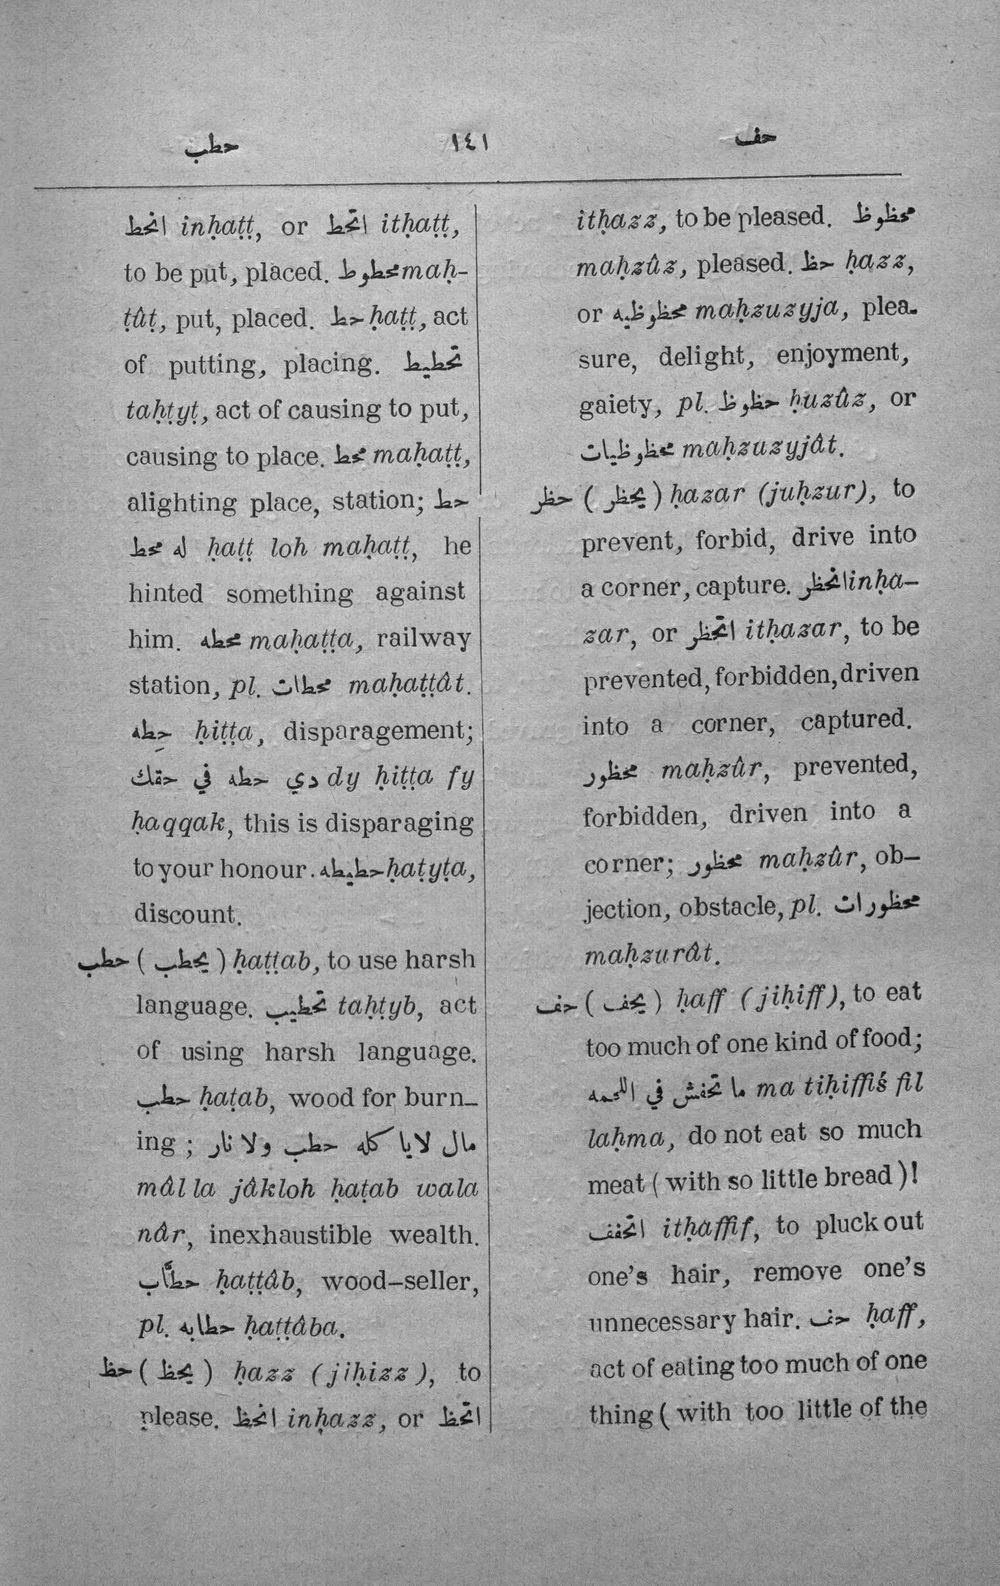 حطب ١٤١ حف
انحط inḥaṭṭ, or اتحط itḥaṭṭ,
to be put, placed. محطوط maḥ-
ṭûṭ, put, placed. حط ḥaṭṭ, act
of putting, placing. تحطيط
taḥṭyṭ, act of causing to put,
causing to place. محط maḥaṭṭ,
alighting place, station; حط
له محط ḥaṭṭ loh maḥaṭṭ, he
hinted something against
him. محطه maḥaṭṭa, railway
station, pl. محطات maḥaṭṭât.
حِطه ḥiṭṭa, disparagement;
دي حطه في حقك dy ḥiṭṭa fy
ḥaqqak, this is disparaging
to your honour. حطيطه ḥaṭyṭa,
discount.
حطب ( يحطب ) ḥaṭṭab, to use harsh
language. تحطيب taḥṭyb, act
of using harsh language.
حطب ḥaṭab, wood for burn-
ing ; مال لايا كله حطب ولا نار
mâl la jâkloh ḥaṭab wala
nâr, inexhaustible wealth.
حطَّاب ḥaṭṭâb, wood-seller,
pl. حطابه ḥaṭṭâba.
حظ ( يحظ ) ḥazz (jiḥizz), to
please. انحظ inḥazz, or اتحظ
itḥazz, to be pleased. محظوظ
maḥzûz, pleased. حظ ḥazz,
or محظوظيه maḥzuzyja, plea-
sure, delight, enjoyment,
gaiety, pl. حظوظ ḥuzûz, or
محظوظيات maḥzuzyjât.
حظر ( يحظر ) ḥazar (juḥzur), to
prevent, forbid, drive into
a corner, capture. انحظر inḥa-
zar, or اتحظر itḥazar, to be
prevented, forbidden, driven
into a corner, captured.
محظور maḥzûr, prevented,
forbidden, driven into a
corner; محظور maḥzûr, ob-
jection, obstacle, pl. محظورات
maḥzurât.
حف ( يحف ) ḥaff (jiḥiff), to eat
too much of one kind of food;
ما تحفش في اللحمه ma tiḥiffiś fil
laḥma, do not eat so much
meat ( with so little bread )!
اتحفف itḥaffif, to pluck out
one's hair, remove one's
unnecessary hair. حف ḥaff,
act of eating too much of one
thing ( with too little of the